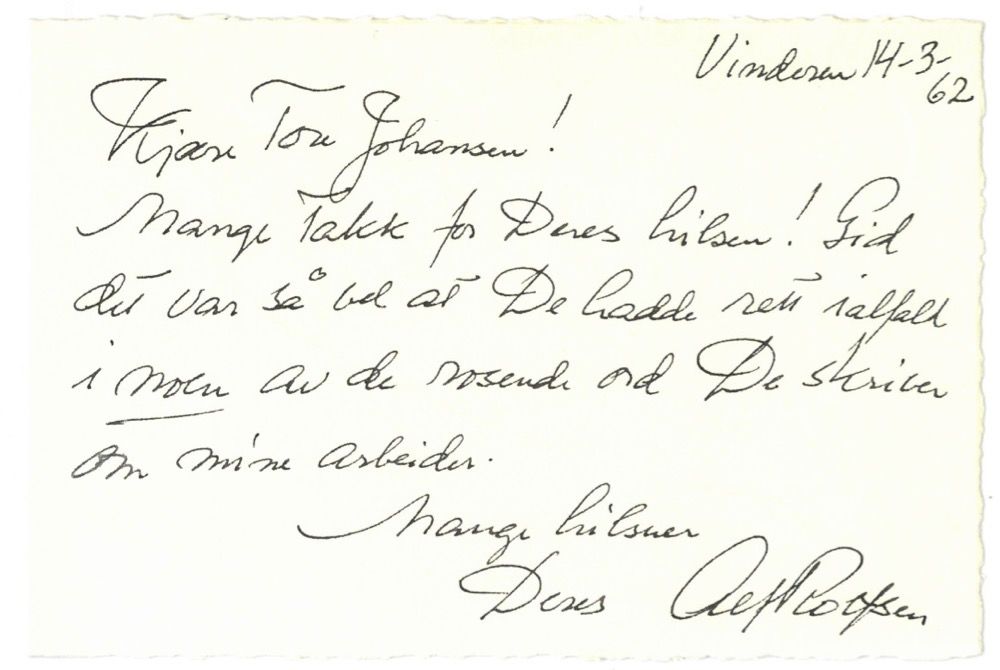 Vinderen 14-3-
62
Kjære Tore Johansen!
Mange Takk for Deres hilsen! Gid
det var så vel at De hadde rett ialfall
i noen av de rosende ord De skriver
om mine arbeider.
Mange hilsner
Deres Alf Rolfsen